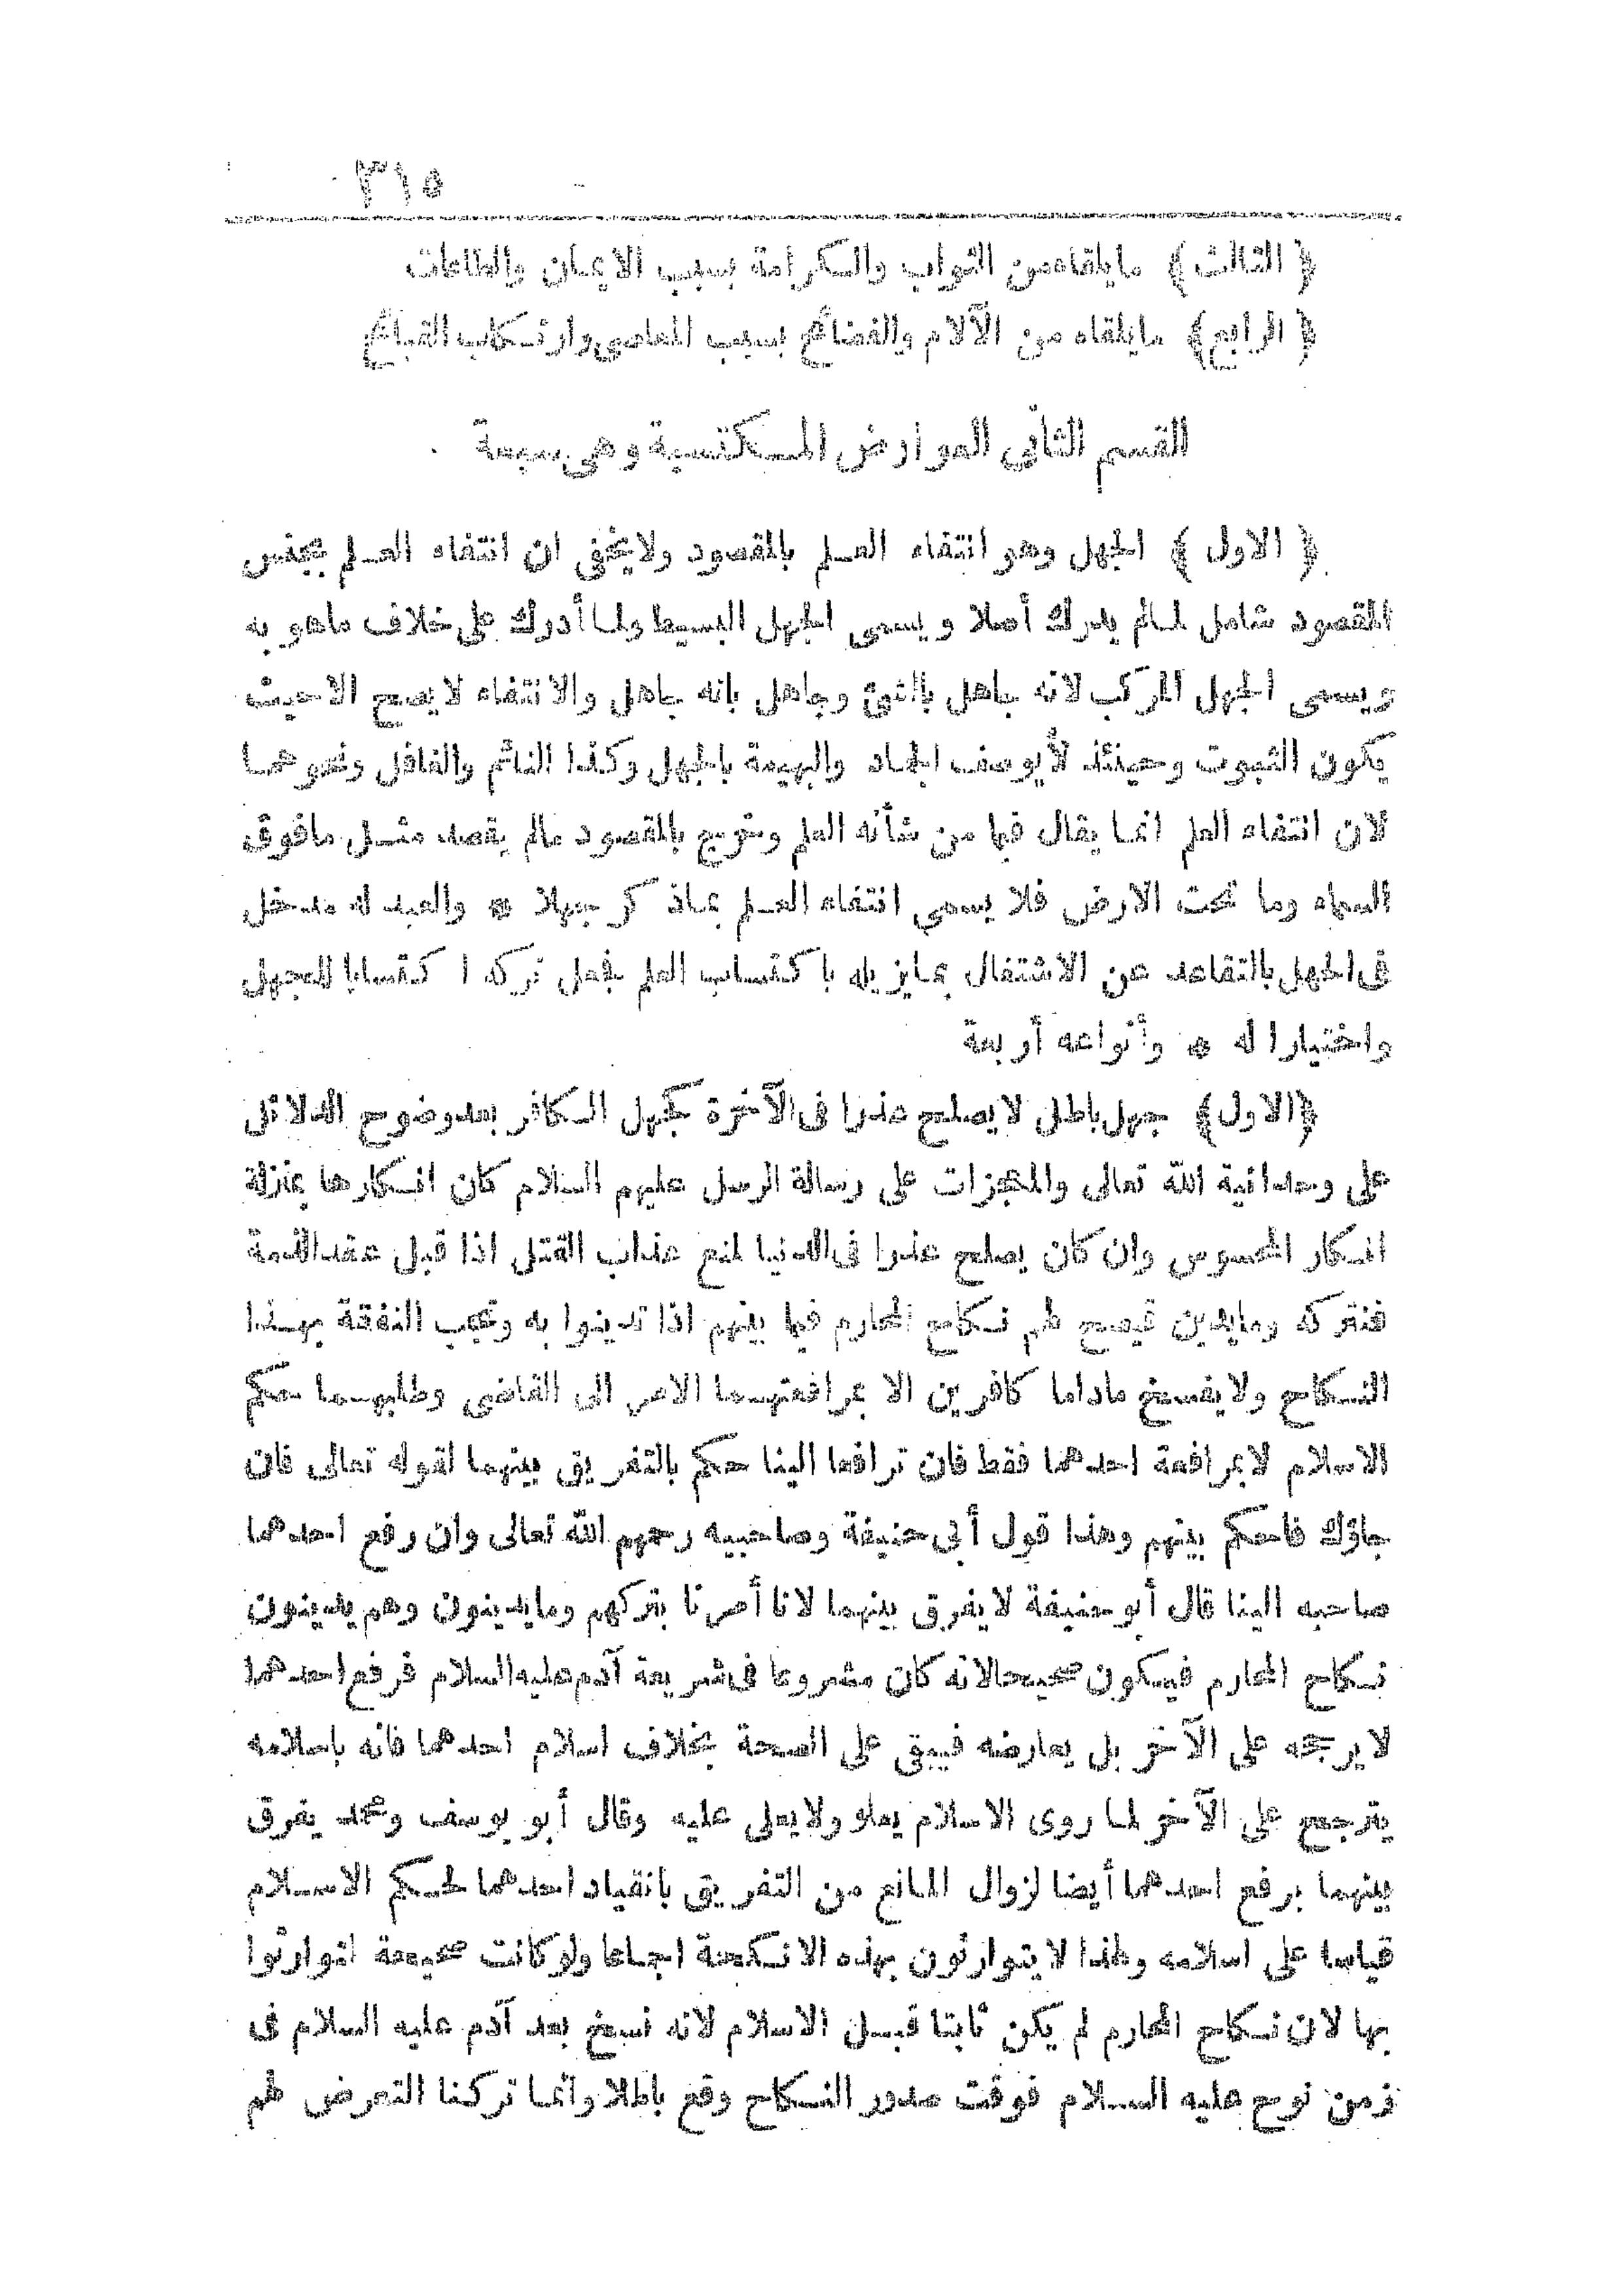 ٣١٥
﴿ الثالث ﴾ مايلقاه من الثواب والكرامة بسبب الايمان والطاعات
﴿ الرابع ﴾ مايلقاه من الآلام والفضائح بسبب المعاصى وارتكاب القبائح
القسم الثانى العوارض المكتسبة وهى سبعة
﴿ الاول ﴾ الجهل وهو انتفاء العلم بالمقصود ولايخفى ان انتفاء العلم بجنس
المقصود شامل لمالم يدرك أصلا ويسمى الجهل البسيط ولما أدرك على خلاف ماهو به
ويسمى الجهل المركب لانه جاهل بالشئ وجاهل بانه جاهل والانتفاء لايصح الاحيث
يكون الثبوت وحينئذ لايوصف الجماد والبهيمة بالجهل وكذا النائم والغافل ونحوهما
لان انتفاء العلم انما يقال فيما من شأنه العلم وخرج بالمقصود مالم يقصد مثل مافوق
السماء وما تحت الارض فلا يسمى انتفاء العلم بماذ كر جهلا * والعبد له مدخل
فى الجهل بالتقاعد عن الاشتغال بمايزيله با كتساب العلم فجعل تركه ا كتسابا للجهل
واختيارا له * وأنواعه أربعة
﴿الاول﴾ جهل باطل لايصلح عذرا فى الآخرة كجهل الكافر بعد وضوح الدلائل
على وحدانية الله تعالى والمعجزات على رسالة الرسل عليهم السلام كان انكارها بمنزلة
انكار المحسوس وان كان يصلح عذرا فى الدنيا لمنع عذاب القتل اذا قبل عقد الذمة
فنتركه ومايدين فيصح لهم نكاح المحارم فيما بينهم اذا تدينوا به وتجب النفقة بهذا
النكاح ولايفسخ ماداما كافرين الا بمرافعتهما الامر الى القاضى وطلبهما حكم
الاسلام لابمرافعة احدهما فقط فان ترافعا الينا حكم بالتفريق بينهما لقوله تعالى فان
جاؤك فاحكم بينهم وهذا قول أبى حنيفة وصاحبيه رحمهم الله تعالى وان رفع احدهما
صاحبه الينا قال أبو حنيفة لايفرق بينهما لانا أمرنا بتركهم ومايدينون وهم يدينون
نكاح المحارم فيكون صحيحا لانه كان مشروعا فى شريعة آدم عليه السلام فرفع احدهما
لايرجحه على الآخر بل يعارضه فيبقى على الصحة بخلاف اسلام احدهما فانه باسلامه
يترجح على الآخر لما روى الاسلام يعلو ولايعلى عليه وقال أبو يوسف ومحمد يفرق
بينهما برفع احدهما أيضا لزوال المانع من التفريق بانقياد احدهما لحكم الاسلام
قياسا على اسلامه ولهذا لايتوارثون بهذه الانكحة اجماعا ولو كانت صحيحة لتوارثوا
بها لان نكاح المحارم لم يكن ثابتا قبل الاسلام لانه نسخ بعد آدم عليه السلام فى
زمن نوح عليه السلام فوقت صدور النكاح وقع باطلا وانما تركنا التعرض لهم